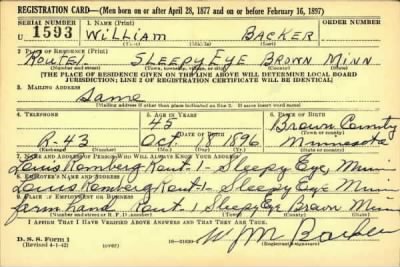 REGISTRATION CARD—(Men born on or after April 28, 1877 and on or before February 16, 1897)
SERIAL NUMBER 1. NAME (Print) ORDER NUMBER
U 1593 WILLIAM BACKER
(First) (Middle) (Last)
2. PLACE OF RESIDENCE (Print)
Route 1 SLEEPY EYE BROWN MINN
(Number and street) (Town, township, village, or city) (County) (State)
[THE PLACE OF RESIDENCE GIVEN ON THE LINE ABOVE WILL DETERMINE LOCAL BOARD
JURISDICTION; LINE 2 OF REGISTRATION CERTIFICATE WILL BE IDENTICAL]
3. MAILING ADDRESS
Same
[Mailing address if other than place indicated on line 2. If same insert word same]
4. TELEPHONE 5. AGE IN YEARS 6. PLACE OF BIRTH
45 Brown County
DATE OF BIRTH (Town or county)
R-43 Oct 18 1896 Minnesota
(Exchange) (Number) (Mo.) (Day) (Yr.) (State or country)
7. NAME AND ADDRESS OF PERSON WHO WILL ALWAYS KNOW YOUR ADDRESS
Louis Romberg Rout 1- Sleepy Eye, Minn
8. EMPLOYER'S NAME AND ADDRESS
Louis Romberg Rout 1- Sleepy Eye Minn
9. PLACE OF EMPLOYMENT OR BUSINESS
farm hand Rout 1 Sleepy Eye Brown Minn
(Number and street or R. F. D. number) (Town) (County) (State)
I AFFIRM THAT I HAVE VERIFIED ABOVE ANSWERS AND THAT THEY ARE TRUE.
D. S. S. Form 1
(Revised 4-1-42) (over) Wm Backer
(Registrant's signature)